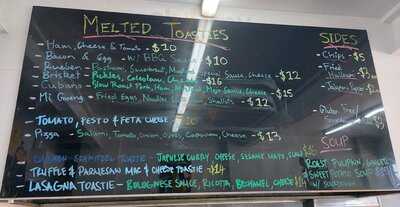 MELTED TOASTIES
- HAM, CHEESE & TOMATO - $10
- BACON & EGG - W/ BBQ $10
- REUBEN - PASTRAMI, SAUERKRAUT, SPECIAL SAUCE, CHEESE - $12
- BRISKET - PICKLES, COLESLAW, CHEESE $16
- CUBANO - SLOW ROAST PORK, HAM, MOJO SAUCE, CHEESE - $15
- MI GORENG - FRIED EGGS, NOODLES, SHALLOTS - $12
TOMATO, PESTO & FETA CURDE
PIZZA - SALAMI, TOMATO, ONION, OLIVES, CAPSICUM, CHEESE - $13
- CHICKEN SCHNITZEL TOASTIE - JAPANESE CURRY, CHEESE, SESAME MAYO, $16
- TRUFFLE & PARMESAN MAC & CHEESE TOASTIE - $14
- LASAGNA TOASTIE - BOLOGNESE SAUCE, RICOTTA, BECHAMEL CHEESE $14
SIDES
- CHIPS - $5
- FRIED
- GLUTEN FREE
SOUP
ROAST PUMPKIN,
& SWEET POTATO SOUP
W/ SOURDOUGH